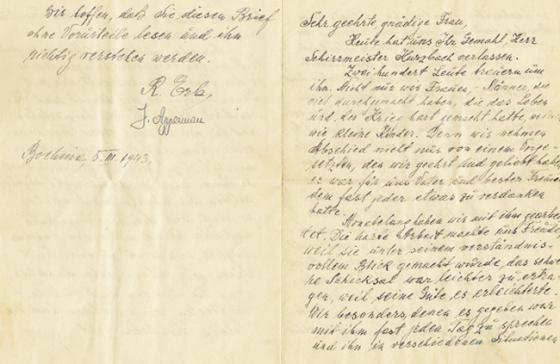 Sehr geehrte gnädige Frau,
Heute hat uns Ihr Gemahl, Herr
Schirrmeister Hurzbach verlassen.
Zweihundert Leute trauern um
ihn. Nicht nur wir Frauen, - Männer, die
viel durchgemacht haben, die das Leben
und der Krieg hart gemacht hatte,
wie kleine Kinder. Denn wir nehmen
Abschied nicht nur von einem Vorge-
setzten, den wir geehrt und geliebt haben,
es war für uns Vater und bester Freund
dem fast jeder etwas zu verdanken
hatte.
Monatelang haben wir mit ihm gearbei
tet. Die harte Arbeit machte uns Freude,
weil sie unter seinem verständnis-
vollem Blick gemacht wurde, das schwe
re Schicksal war leichter zu ertra-
gen, weil seine Güte, es erleichterte.
Wir besonders, denen es gegeben war
mit ihm fast jeden Tag zu sprechen
und ihn in verschiedenen Situationen
Wir hoffen, daß Sie diesen Brief
ohne Vorurteile lesen und ihn
richtig verstehen werden.
R Erb,
J.
Bochnia, 5. III. 1943.